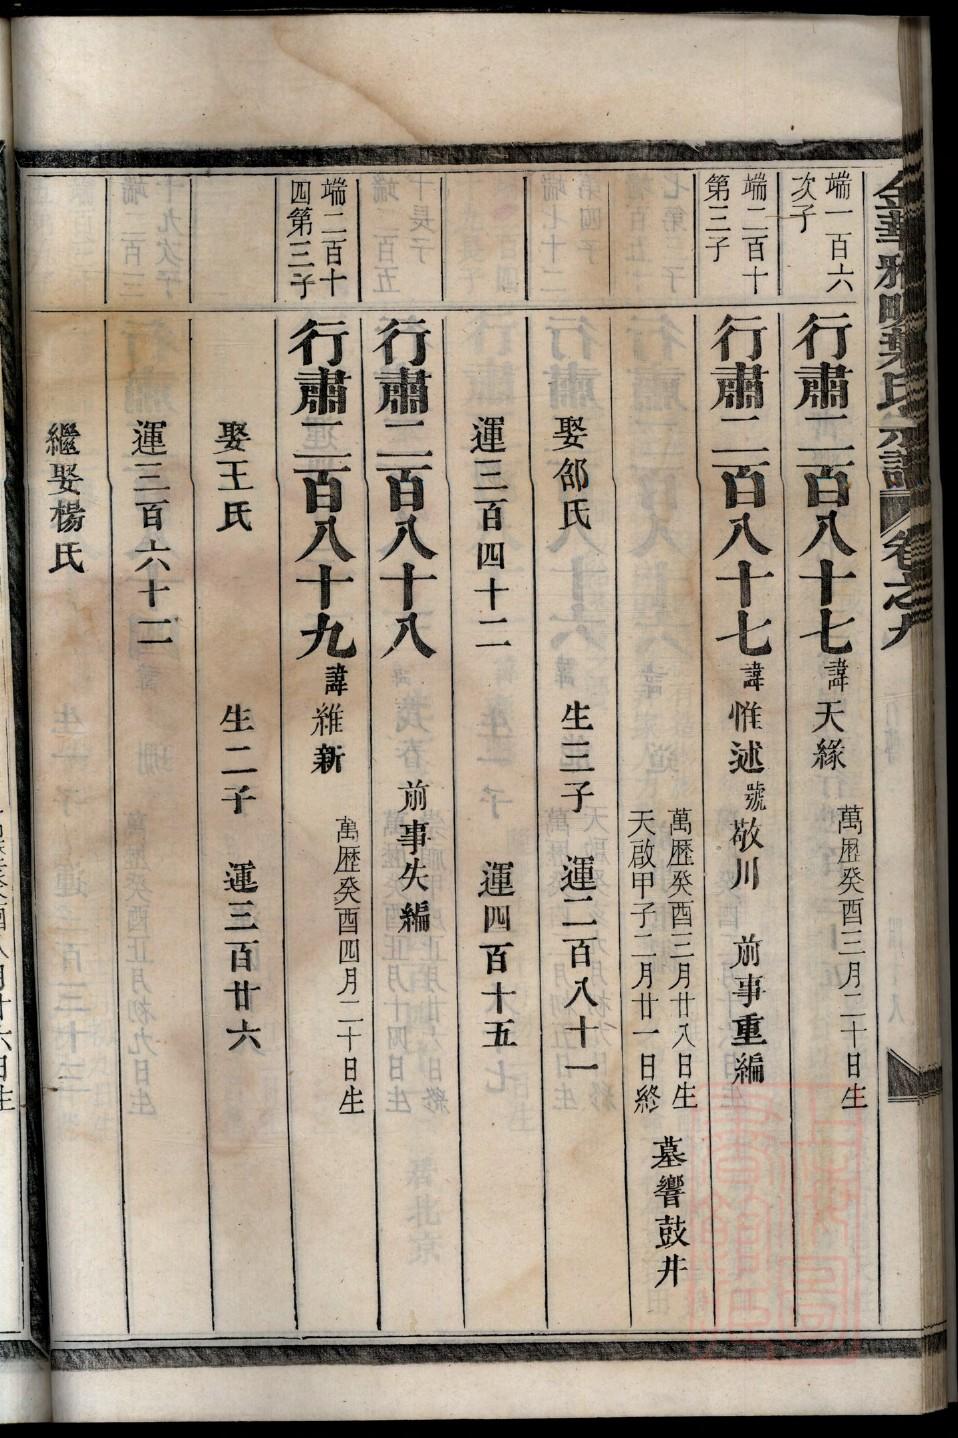 金華雅畈葉氏宗譜 卷之九
端一百六
次子
行肅二百八十七 諱天緣 萬歷癸酉三月二十日生
端二百十
第三子
行肅二百八十七 諱惟述 號敬川 前事重編
萬歷癸酉三月廿八日生
天啟甲子二月廿一日終
墓響鼓井
娶郃氏 生三子 運二百八十一
運三百四十二 運四百十五
行肅二百八十八 前事失編
端二百十
四第三子
行肅二百八十九 諱維新 萬歷癸酉四月二十日生
娶王氏 生二子 運三百廿六
運三百六十二
繼娶楊氏